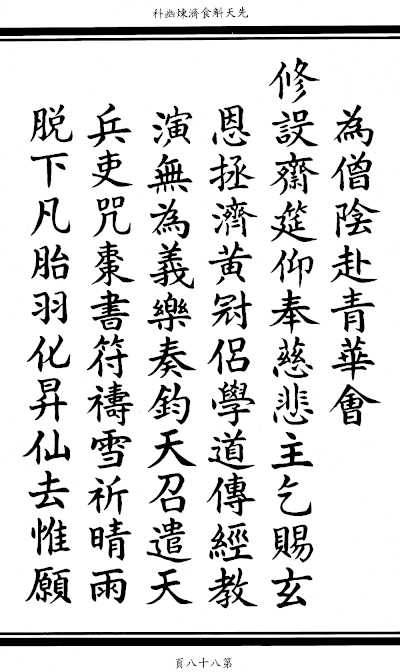 科幽煉濟食斛天先
為僧陰赴青華會
修設齋筵仰奉慈悲主乞賜玄
恩拯濟黃冠侶學道傳經教
演無為義樂奏鈞天召遣天
兵吏咒棗書符禱雪祈晴雨
脱下凡胎羽化昇仙去惟願
頁八十八第